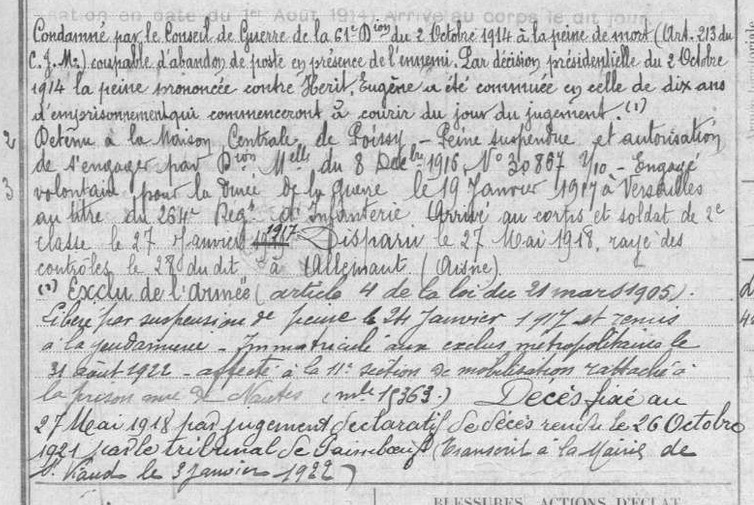 nation en date du 1er Août 1914. Arrivé au corps le dit jour.
Condamné par le Conseil de Guerre de la 61e Dion du 2 Octobre 1914 à la peine de mort (Art. 213 du
C.J.M.) coupable d'abandon de poste en présence de l'ennemi. Par décision présidentielle du 2 Octobre
1914 la peine prononcée contre Herit, Eugène a été commuée en celle de dix ans
d'emprisonnement qui commenceront à courir du jour du jugement. (1)
2 Détenu à la Maison Centrale de Poissy - Peine suspendue et autorisation
de s'engager par Dion Melle du 8 Decbre 1916, No 30867 Y10 - Engagé
3 volontaire pour la durée de la guerre le 19 Janvier 1917 à Versailles
au titre du 264e Régt d'Infanterie Arrivé au corps et soldat de 2e
classe le 27 Janvier 1917 Disparu le 27 Mai 1918, rayé des
contrôles le 28 du dit à Allemant (Aisne).
(1) Exclu de l'armée (article 4 de la loi du 21 mars 1905).
Libéré par suspension de peine le 24 Janvier 1917 et remis
à la gendarmerie - Immatriculé aux exclus métropolitains le
31 août 1922 - affecté à la 11e section de mobilisation rattachée à
la prison mre de Nantes (mle 15363.) Décès fixé au
27 Mai 1918 par jugement déclaratif de décès rendu le 26 Octobre
1921 par le tribunal de Paimboeuf (Transcrit à la Mairie de
St Viaud le 3 janvier 1922)
BLESSURES, ACTIONS D'ÉCLAT